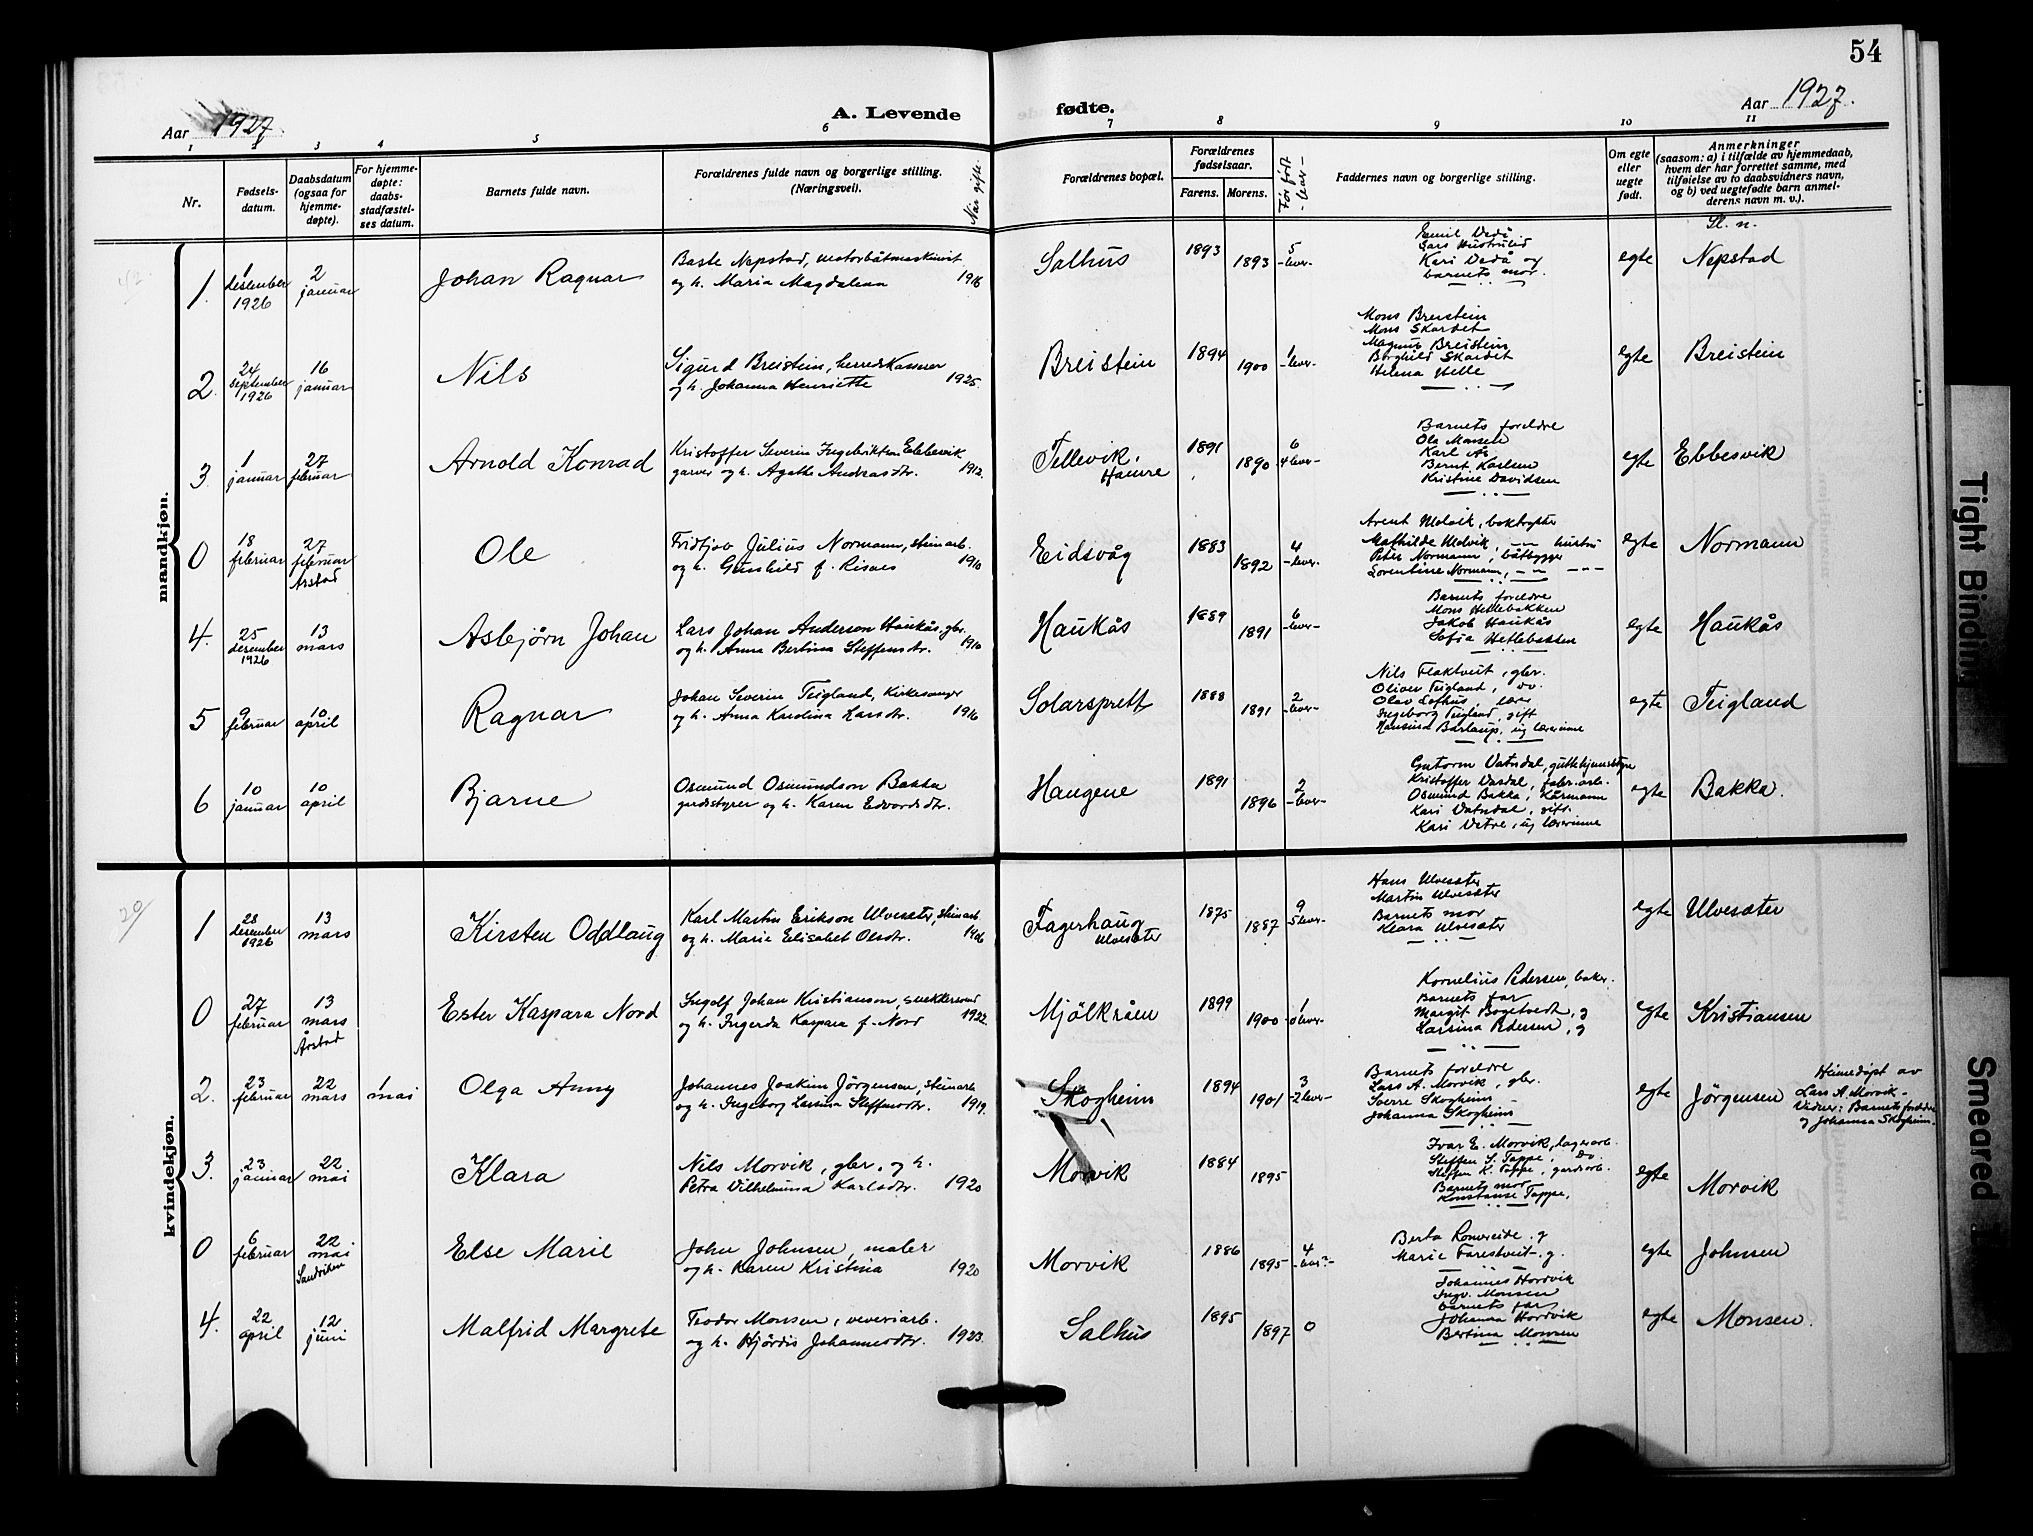 54
Aar 1927.
A. Levende fødte.
Aar 1927.
1 2 3 4 5 6 7 8 9 10 11
Nr.
Fødsels-
datum.
Daabsdatum
(ogsaa for
hjemme-
døpte).
For hjemme-
døpte:
daabs-
stadfæstel-
ses datum.
Barnets fulde navn.
Forældrenes fulde navn og borgerlige stilling.
(Næringsvei).
Når gifte
Forældrenes bopæl.
Forældrenes
fødselsaar.
Farens. Morens.
Før født
-lever-
Faddernes navn og borgerlige stilling.
Om egte
eller
uegte
født.
Anmerkninger
(saasom: a) i tilfælde av hjemmedaab,
hvem der har forrettet samme, med
tilføielse av to daabsvidners navn,
og b) ved uegtefødte barn anmel-
derens navn m. v.).
Sl. n.
mandkjøn.
1. 1 desember 1926
2 januar
Johan Ragnar
Baste Nepstad, motorbåtmaskinist
og h. Maria Magdalena 1916
Salhus
1893 1893
5 -lever-
Emil Vedå
Lars Hustrulid
Kari Vedå og
barnets mor.
egte
Nepstad
2. 24 september 1926
16 januar
Nils
Sigurd Breistein, herredkasserer
og h. Johanna Henriette 1925.
Breistein
1894 1900
1 -lever-
Mons Breistein
Mons Skardet
Magnus Breistein
Borghild Skardet
Helena Helle
egte
Breistein
3. 1 januar
27 februar
Arnold Konrad
Kristoffer Severin Ingebriktsen Ebbesvik
garver og h. Agathe Andreasdtr. 1912.
Tellevik,
Hamre
1891 1890
6 4 lever-
Barnets foreldre
Ola Monsen
Karl Ås
Bernt Karlsen
Kristine Davidsen
egte
Ebbesvik
0 18 februar
27 februar
Årstad
Ole
Fridtjov Julius Normann, steinarb.
og h. Gunhild f. Risnes 1910
Eidsvåg
1883 1892
4 -lever-
Arent Molvik, boktrykker
Mathilde Molvik, hustru
Peter Normann, båtbygger
Lorentine Normann,
egte
Normann
4. 25 desember 1926
13 mars
Asbjørn Johan
Lars Johan Anderson Haukås, gbr.
og h. Anna Bertina Steffensdtr. 1910
Haukås
1889 1891
6 -lever-
Barnets foreldre
Mons Hetlebakken
Jakob Haukås
Sofia Hetlebakken
egte
Haukås
5 9 februar
10 april
Ragnar
Johan Severin Teigland, kirkesanger
og h. Anna Karolina Larsdtr. 1916
Solarsprett
1888 1891
2 -lever-
Nils Flaktveit, gbr.
Oliver Teigland, do.
Olav Lofthus, lærer
Ingeborg Teigland, gift
Hansina Børtaup, ug lærerinne
egte
Teigland
6 10 januar
10 april
Bjarne
Osmund Osmundson Bakka
gardsstyrer og h. Karen Edvardsdtr.
Haugene
1891 1896
2 -lever-
Gutorm Vatndal, guttehjemsstyrer
Kristoffer Vasdal, fabr.arb.
Osmund Bakka, kårmann
Kari Vatndal, gift.
Kari Vetre, ug lærerinne
egte
Bakka.
kvindekjøn.
20/
1 28 desember 1926
13 mars
Kirsten Oddlaug
Karl Martin Erikson Ulvesæter, steinarb.
og h. Marie Elisabet Olsdtr. 1906
Fagerhaug
Ulvesæter
1875 1887
9 5 lever-
Hans Ulvesæter
Martin Ulvesæter
Barnets mor
Klara Ulvesæter
egte
Ulvesæter
0 27 februar
13 mars
Årstad
Ester Kaspara Nord
Ingolf Johan Kristianson, snekkersvend
og h. Ingerda Kaspara f. Nord 1922.
Mjölkråen
1899 1900
1 0 lever-
Kornelius Pedersen, baker.
Barnets far
Margit Bogetvedt, g
Larsina Pedersen, g
egte
Kristiansen
2. 23 februar
22 mars
1 mai
Olga Anny
Johannes Joakim Jörgensen, steinarb.
og h. Ingeborg Larsina Steffensdtr. 1919.
Skogheim
1894 1901
3 -2 lever-
Barnets foreldre
Lars A. Morvik, gbr.
Sverre Skogheim
Johanna Skogheim
egte
Jörgensen
Heimedøpt av
Lars A. Morvik.-
Vidner: Barnets foreldre
og Johanna Skogheim.
3. 23 januar
22 mai
Klara
Nils Morvik, gbr. og h.
Petra Vilhelmina Karlsdtr. 1920
Morvik
1884 1895
Ivar E. Morvik, lagerarb.
Steffen S. Toppe, do.
Steffen K. Toppe, gardsarb.
Barnets mor
Konstanse Toppe.
egte
Morvik
0 6 februar
22 mai
Sandviken
Else Marie
John Johnsen, maler
og h. Karen Kristina 1920
Morvik
1886 1895
4 -lever?-
Berta Romereide. g
Marie Farestveit. g.
egte
Johnsen
4. 22 april
12 juni
Malfrid Margrete
Teodor Monsen, veveriarb.
og h. Hjördis Johannesdtr. 1923.
Salhus
1895 1897
0
Johannes Hordvik
Ingv. Monsen
barnets far
Johanna Hordvik
Bertina Monsen
egte
Monsen.
Tight Binding
Smeared